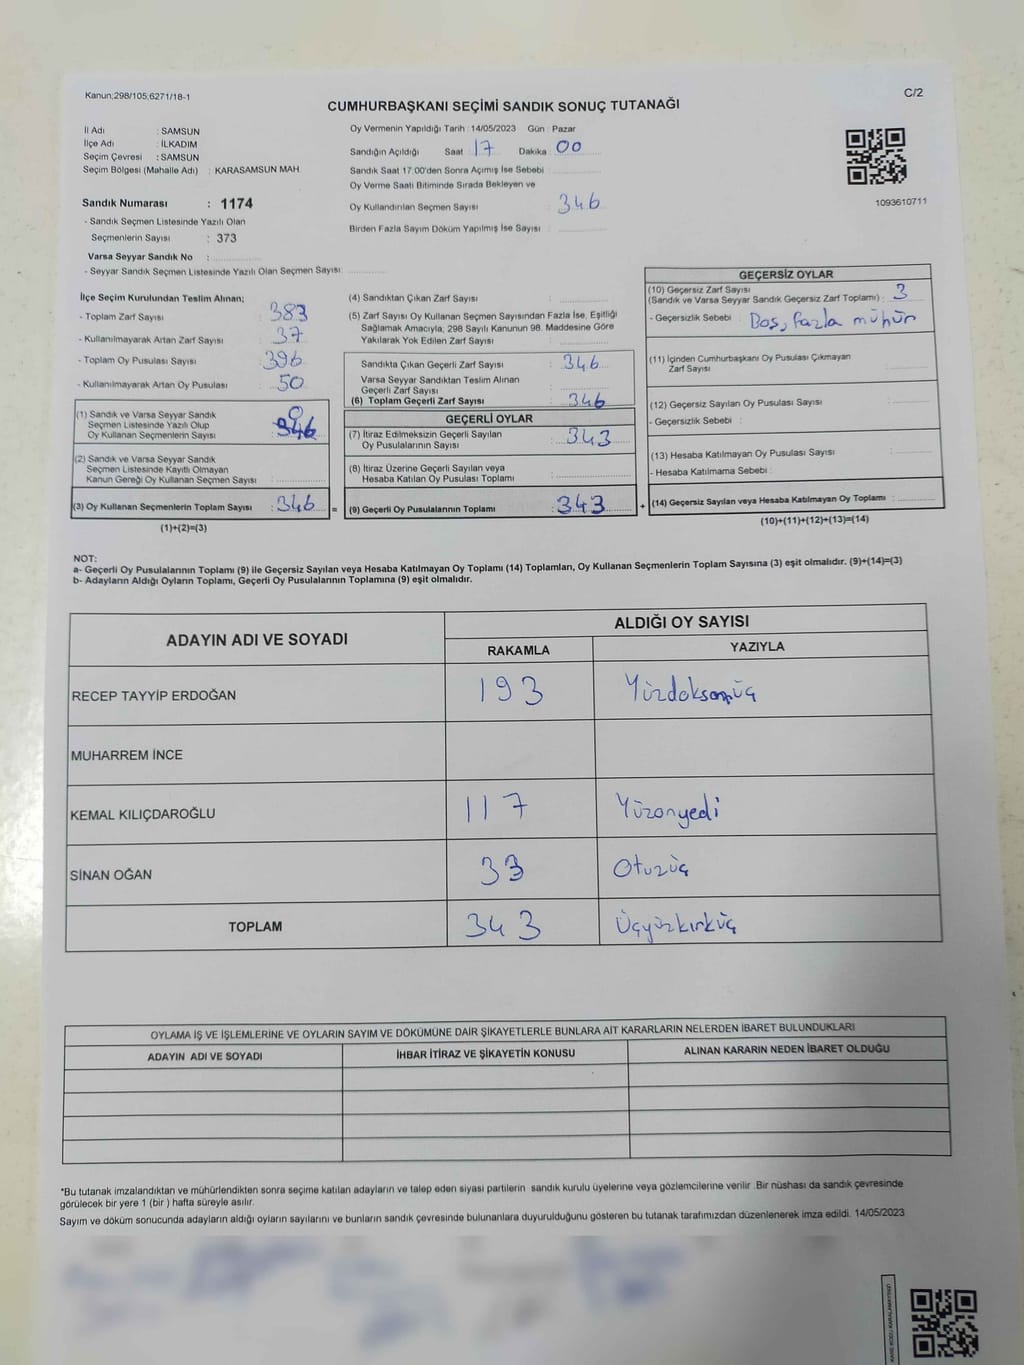 Kanun;298/105,6271/18-1
C/2
CUMHURBAŞKANI SEÇİMİ SANDIK SONUÇ TUTANAĞI
İl Adı : SAMSUN
İlçe Adı : İLKADIM
Seçim Çevresi : SAMSUN
Seçim Bölgesi (Mahalle Adı) : KARASAMSUN MAH.
Sandık Numarası : 1174
- Sandık Seçmen Listesinde Yazılı Olan
Seçmenlerin Sayısı : 373
Varsa Seyyar Sandık No :
- Seyyar Sandık Seçmen Listesinde Yazılı Olan Seçmen Sayısı:
Oy Vermenin Yapıldığı Tarih : 14/05/2023 Gün : Pazar
Sandığın Açıldığı Saat 17 Dakika 00
Sandık Saat 17.00'den Sonra Açımış İse Sebebi :
Oy Verme Saati Bitiminde Sırada Bekleyen ve
Oy Kullandırılan Seçmen Sayısı : 346
Birden Fazla Sayım Döküm Yapılmış İse Sayısı :
1093610711
İlçe Seçim Kurulundan Teslim Alınan;
- Toplam Zarf Sayısı : 383
- Kullanılmayarak Artan Zarf Sayısı : 37
- Toplam Oy Pusulası Sayısı : 396
- Kullanılmayarak Artan Oy Pusulası : 50
(1) Sandık ve Varsa Seyyar Sandık
Seçmen Listesinde Yazılı Olup
Oy Kullanan Seçmenlerin Sayısı : 346
(2) Sandık ve Varsa Seyyar Sandık
Seçmen Listesinde Kayıtlı Olmayan
Kanun Gereği Oy Kullanan Seçmen Sayısı :
(3) Oy Kullanan Seçmenlerin Toplam Sayısı : 346 =
(1)+(2)=(3)
(4) Sandıktan Çıkan Zarf Sayısı :
(5) Zarf Sayısı Oy Kullanan Seçmen Sayısından Fazla İse, Eşitliği
Sağlamak Amacıyla; 298 Sayılı Kanunun 98. Maddesine Göre
Yakılarak Yok Edilen Zarf Sayısı :
Sandıkta Çıkan Geçerli Zarf Sayısı : 346
Varsa Seyyar Sandıktan Teslim Alınan
Geçerli Zarf Sayısı :
(6) Toplam Geçerli Zarf Sayısı : 346
GEÇERLİ OYLAR
(7) İtiraz Edilmeksizin Geçerli Sayılan
Oy Pusulalarının Sayısı : 343
(8) İtiraz Üzerine Geçerli Sayılan veya
Hesaba Katılan Oy Pusulası Toplamı :
(9) Geçerli Oy Pusulalarının Toplamı : 343 +
GEÇERSİZ OYLAR
(10) Geçersiz Zarf Sayısı
(Sandık ve Varsa Seyyar Sandık Geçersiz Zarf Toplamı) : 3
- Geçersizlik Sebebi : Boş, fazla mühür
(11) İçinden Cumhurbaşkanı Oy Pusulası Çıkmayan
Zarf Sayısı :
(12) Geçersiz Sayılan Oy Pusulası Sayısı :
- Geçersizlik Sebebi :
(13) Hesaba Katılmayan Oy Pusulası Sayısı :
- Hesaba Katılmama Sebebi :
(14) Geçersiz Sayılan veya Hesaba Katılmayan Oy Toplamı :
(10)+(11)+(12)+(13)=(14)
NOT:
a- Geçerli Oy Pusulalarının Toplamı (9) ile Geçersiz Sayılan veya Hesaba Katılmayan Oy Toplamı (14) Toplamları, Oy Kullanan Seçmenlerin Toplam Sayısına (3) eşit olmalıdır. (9)+(14)=(3)
b- Adayların Aldığı Oyların Toplamı, Geçerli Oy Pusulalarının Toplamına (9) eşit olmalıdır.
ADAYIN ADI VE SOYADI
ALDIĞI OY SAYISI
RAKAMLA YAZIYLA
RECEP TAYYİP ERDOĞAN 193 Yüzdoksanüç
MUHARREM İNCE
KEMAL KILIÇDAROĞLU 117 Yüzonyedi
SİNAN OĞAN 33 Otuzüç
TOPLAM 343 Üçyüzkırküç
OYLAMA İŞ VE İŞLEMLERİNE VE OYLARIN SAYIM VE DÖKÜMÜNE DAİR ŞİKAYETLERLE BUNLARA AİT KARARLARIN NELERDEN İBARET BULUNDUKLARI
ADAYIN ADI VE SOYADI İHBAR İTİRAZ VE ŞİKAYETİN KONUSU ALINAN KARARIN NEDEN İBARET OLDUĞU
*Bu tutanak imzalandıktan ve mühürlendikten sonra seçime katılan adayların ve talep eden siyasi partilerin sandık kurulu üyelerine veya gözlemcilerine verilir .Bir nüshası da sandık çevresinde
görülecek bir yere 1 (bir ) hafta süreyle asılır.
Sayım ve döküm sonucunda adayların aldığı oyların sayılarını ve bunların sandık çevresinde bulunanlara duyurulduğunu gösteren bu tutanak tarafımızdan düzenlenerek imza edildi. 14/05/2023